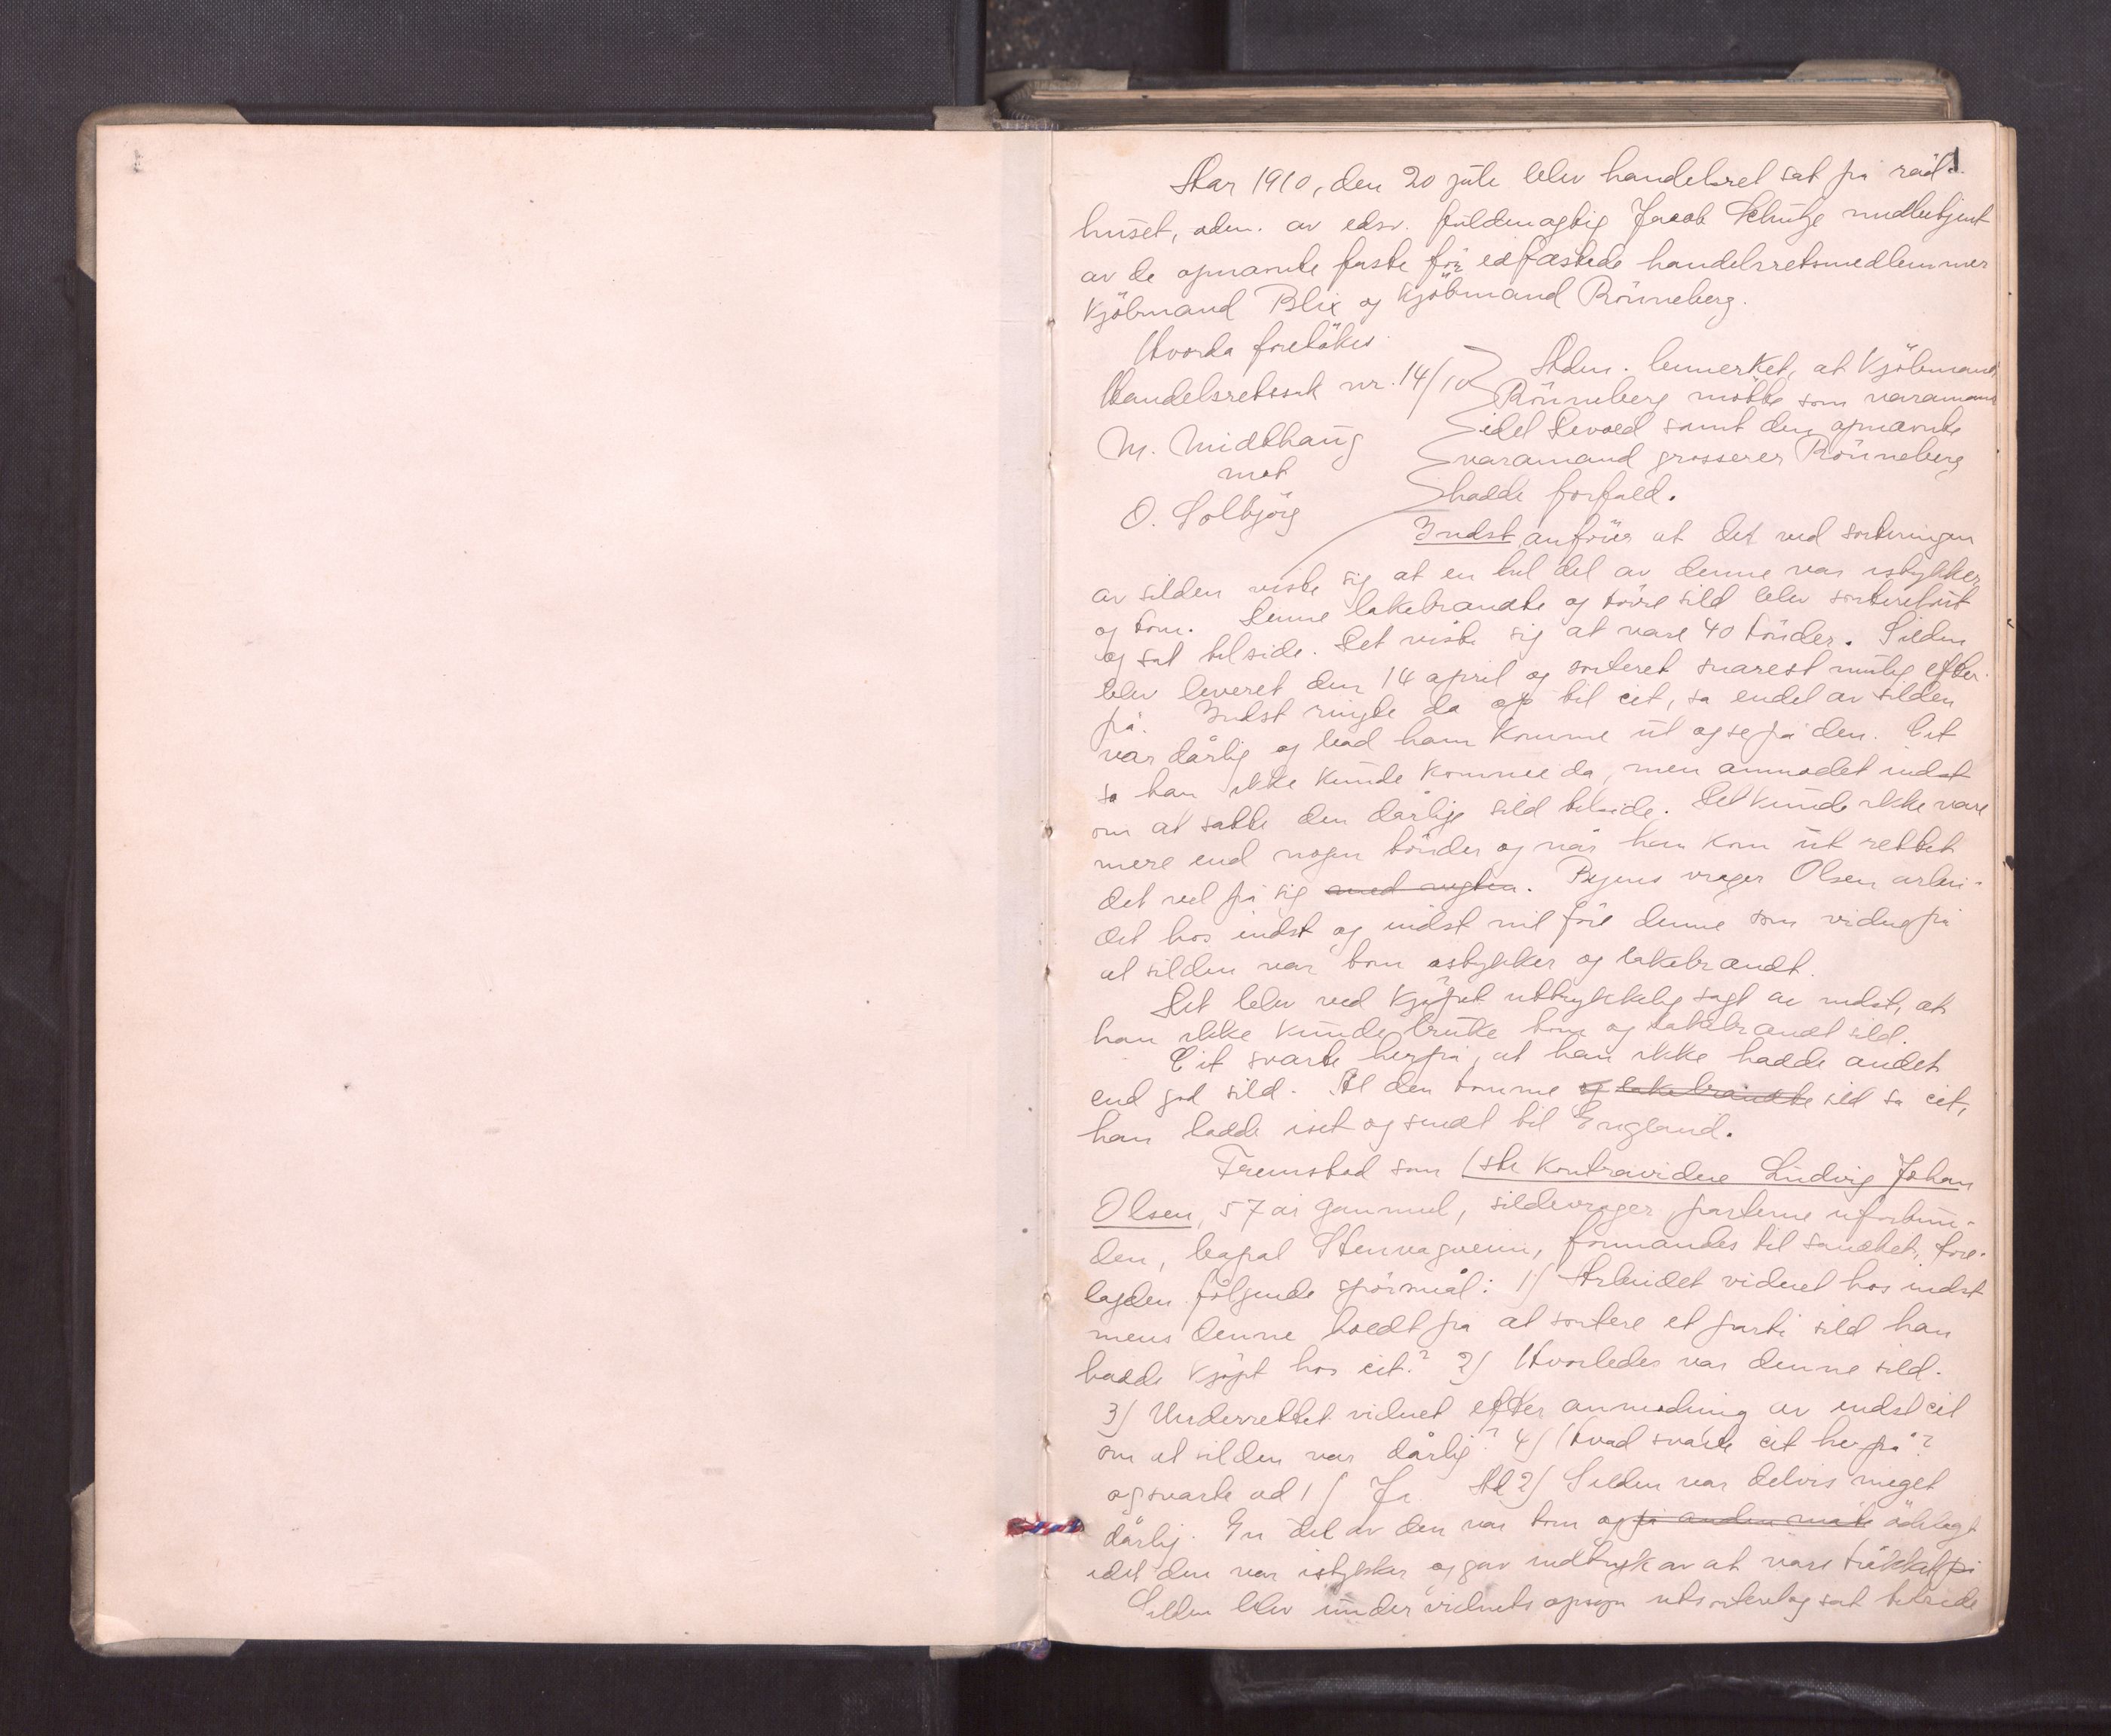 1
Aar 1910, den 20 juli blev handelsret sat på råd-
huset, adm. av edsv. fuldmægtig Jacob Schütze medbetjent
av de opnævnte faste før edfæstede handelsretsmedlemmer
Kjøbmand Blix og Kjøbmand Rønneberg.
Hvorda foretokes
Handelsretssak nr. 14/10
M. Midthaug
mot
O. Solbjørg
Adm. bemerket, at Kjøbmand
Rønneberg møtte som varamand
idet Devold samt den opnævnte
varamand grosserer Rønneberg
hadde forfald.
Indst anfører at det ved sorteringen
av silden viste sig at en hel del av denne var istykker
og tom. Denne lakebrandte og tørre sild blev sorteret ut
og sat tilside. Det viste sig at være 40 tønder. Silden
blev leveret den 14 april og sorteret snarest mulig efter-
på. Indst ringte da op til cit, sa endel av silden
var dårlig og bad ham komme ut og se på den. Cit
sa han ikke kunde komme da, men anmodet indst
om at sætte den dårlige sild tilside. Det kunde ikke være
mere end nogen tønder og når han kom ut rettet
det vel på sig med vegten. Byens vrager Olsen arbei-
det hos indst og indst vil føre denne som vidne på
at silden var tom istykker og lakebrandt.
Det blev ved kjøpet uttrykkelig sagt av indst, at
han ikke kunde bruke tom og lakebrandt sild.
Cit svarte herpå, at han ikke hadde andet
end god sild. Al den tomme og lakebrandte sild sa cit,
han hadde iset og sendt til England.
Fremstod som 1ste kontravidne Ludvig Johan
Olsen, 57 år gammel, sildevrager, parterne uforbun-
den, bopæl Stenvågveien, formandes til sandhet, fore-
lagden følgende spørsmål: 1/ Arbeidet vidnet hos indst
mens denne hældt på at sortere et parti sild han
hadde kjøpt hos cit? 2/ Hvorledes var denne sild.
3/ Underrettet vidnet efter anmodning av indst cit
om at silden var dårlig? 4/ Hvad svarte cit herpå?
og svarte ad 1/ Ja. Ad 2/ Silden var delvis meget
dårlig. En del av den var tom og på anden måte ødelagt
idet den var istykker og gav indtryk av at være tråkket på
Silden blev under vidnets opsyn utsorteret og sat tilside